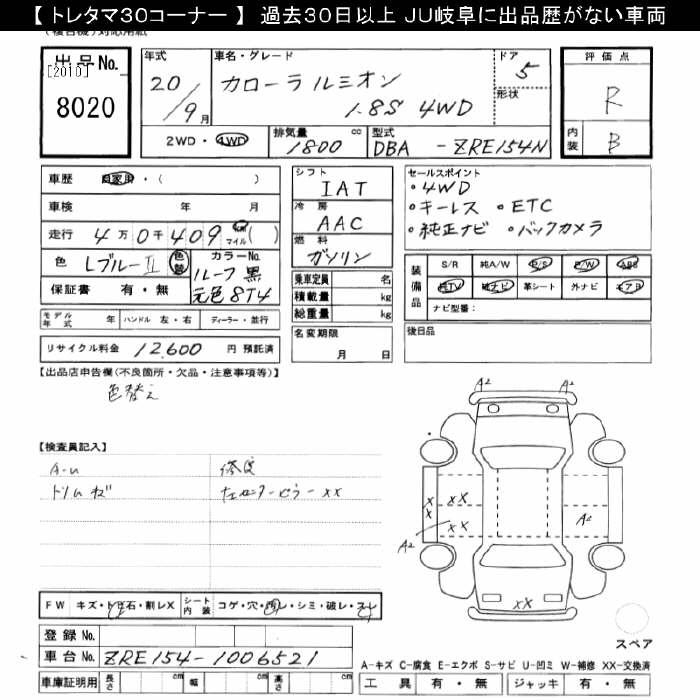 【 トレタマ30コーナー 】 過去30日以上 JU岐阜に出品歴がない車両
出品No.
[2010]
8020
年式 20/9月
車名・グレード カローラルミオン 1.8S 4WD
ドア 5
形状
2WD・4WD
排気量 1800 cc
型式 DBA-ZRE154N
評価点 R
内装 B
車歴 自家用・( )
車検 年 月
走行 4万0千409 km マイル( )
色 Lブルー II 色替
カラーNo. ルーフ黒 元色8T4
保証書 有・無
シフト IAT
冷房 AAC
燃料 ガソリン
乗車定員 名
積載量 kg
総重量 kg
セールスポイント
・4WD
・キーレス ・ETC
・純正ナビ ・バックカメラ
装備品 S/R 純A/W P/S P/W ABS
純TV 純ナビ 革シート 外ナビ エアB
ナビ型番:
モデル年式 年 ハンドル 左・右 ディーラー・並行
リサイクル料金 12,600 円 預託済
名変期限 月 日
後日品
【出品店申告欄(不良箇所・欠品・注意事項等)】
色替え
【検査員記入】
A-u
修復
左センターピラーXX
A2 A2
XX
XX
XX
A2
A2
XX
スペア
FW キズ・トビ石・割レX シート内装 コゲ・穴・汚レ・シミ・破レ・スレ
登録No.
車台No. ZRE154-1006521
車庫証明用 長さ cm 幅 cm 高さ cm
A-キズ C-腐食 E-エクボ S-サビ U-凹ミ W-補修 XX-交換済
工具 有・無 ジャッキ 有・無